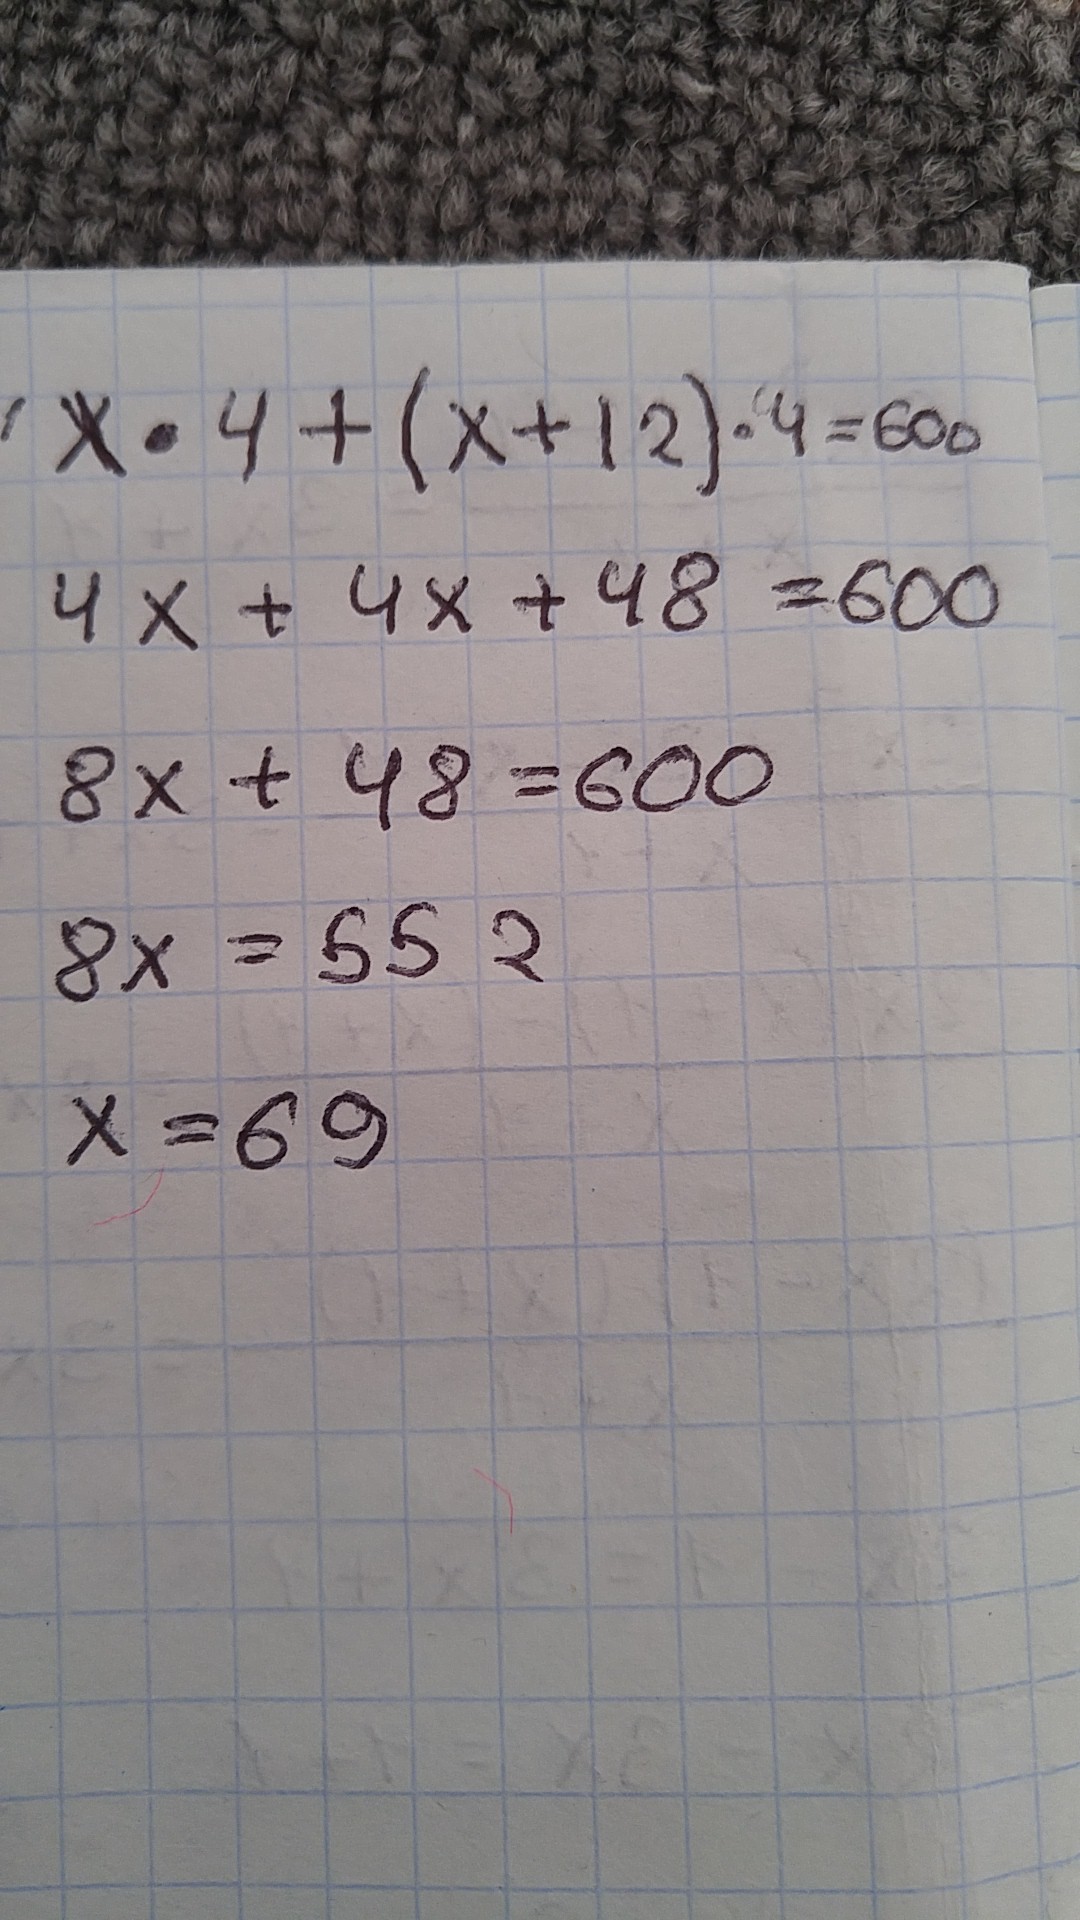 x • 4 + (x+12) • 4 = 600
4x + 4x + 48 = 600
8x + 48 = 600
8x = 552
x = 69